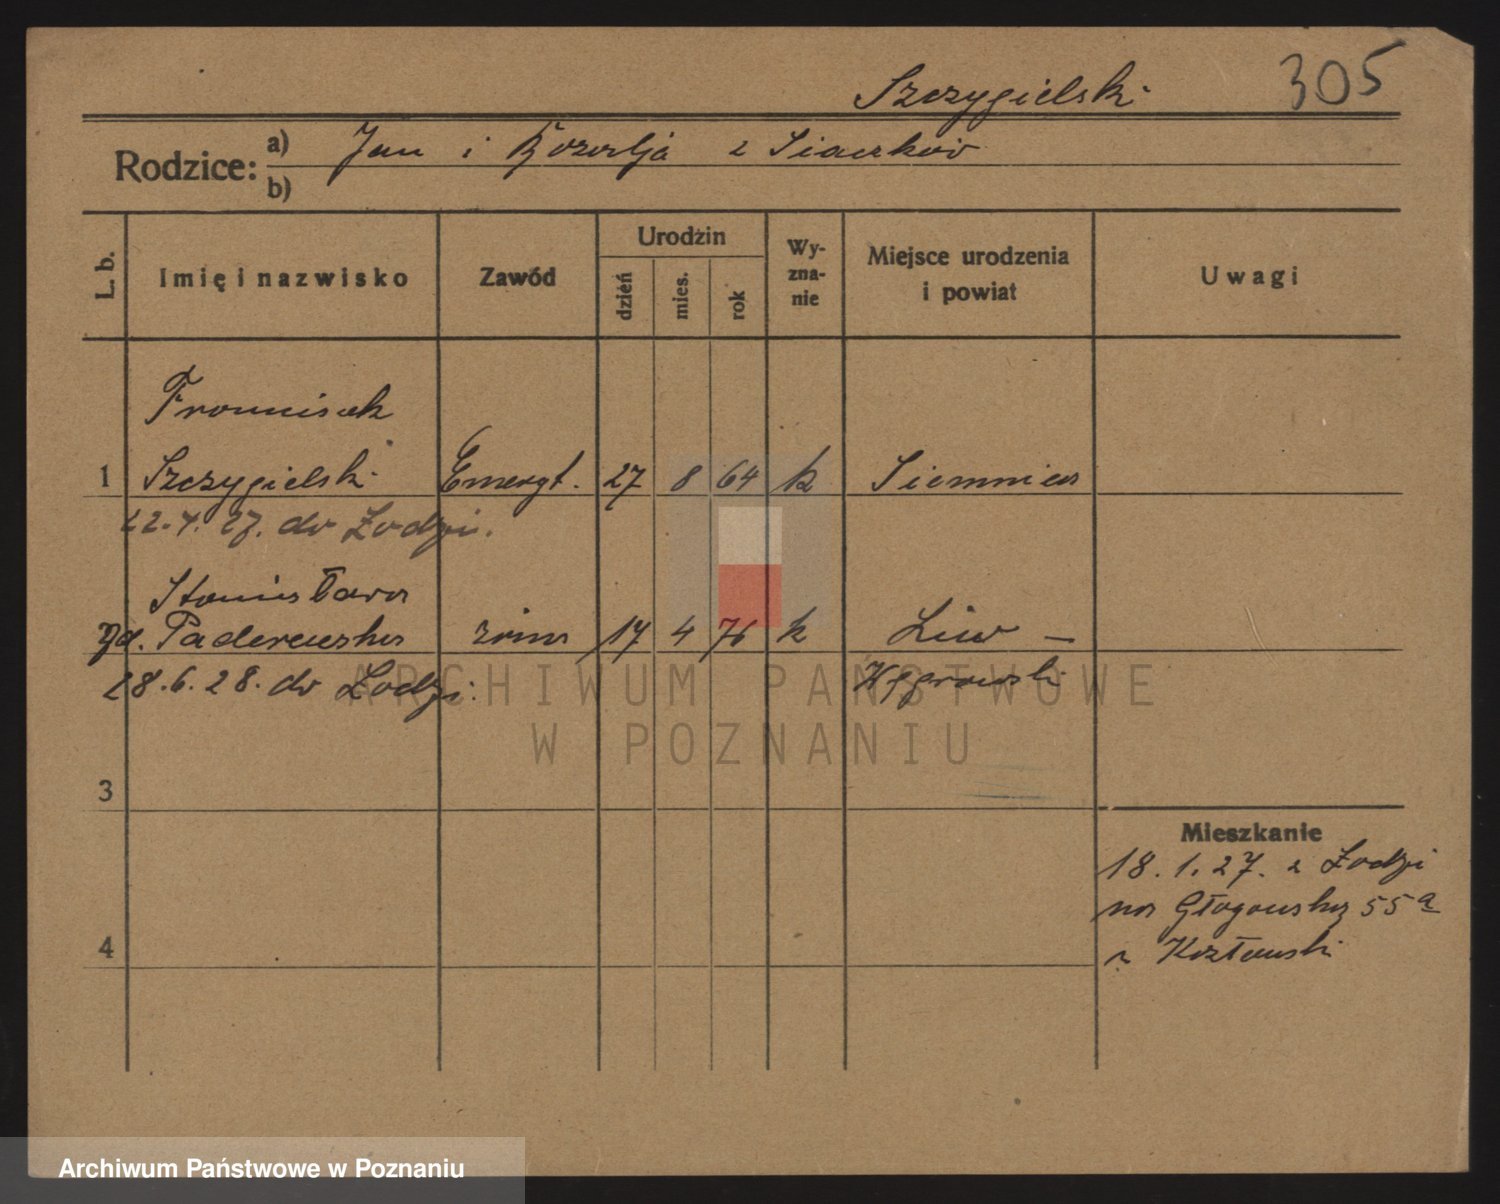 Szczygielski 305
Rodzice: a) Jan i Rozalja z Siaczków
b)
L. b. Imię i nazwisko Zawód Urodzin dzień mies. rok Wy-zna-nie Miejsce urodzenia i powiat Uwagi
Franciszek
1 Szczygielski Emeryt. 27 8 64 k
22.4.27. do Łodzi.
Stanisława
Paderewska żona 17 4 76 k Liw —
28.6.28. do Łodzi. Węgrowski
3
Mieszkanie
18.1.27. z Łodzi
na Głogowską 55a
4 Kozłowski
ARCHIWUM PAŃSTWOWE
W POZNANIU
Archiwum Państwowe w Poznaniu